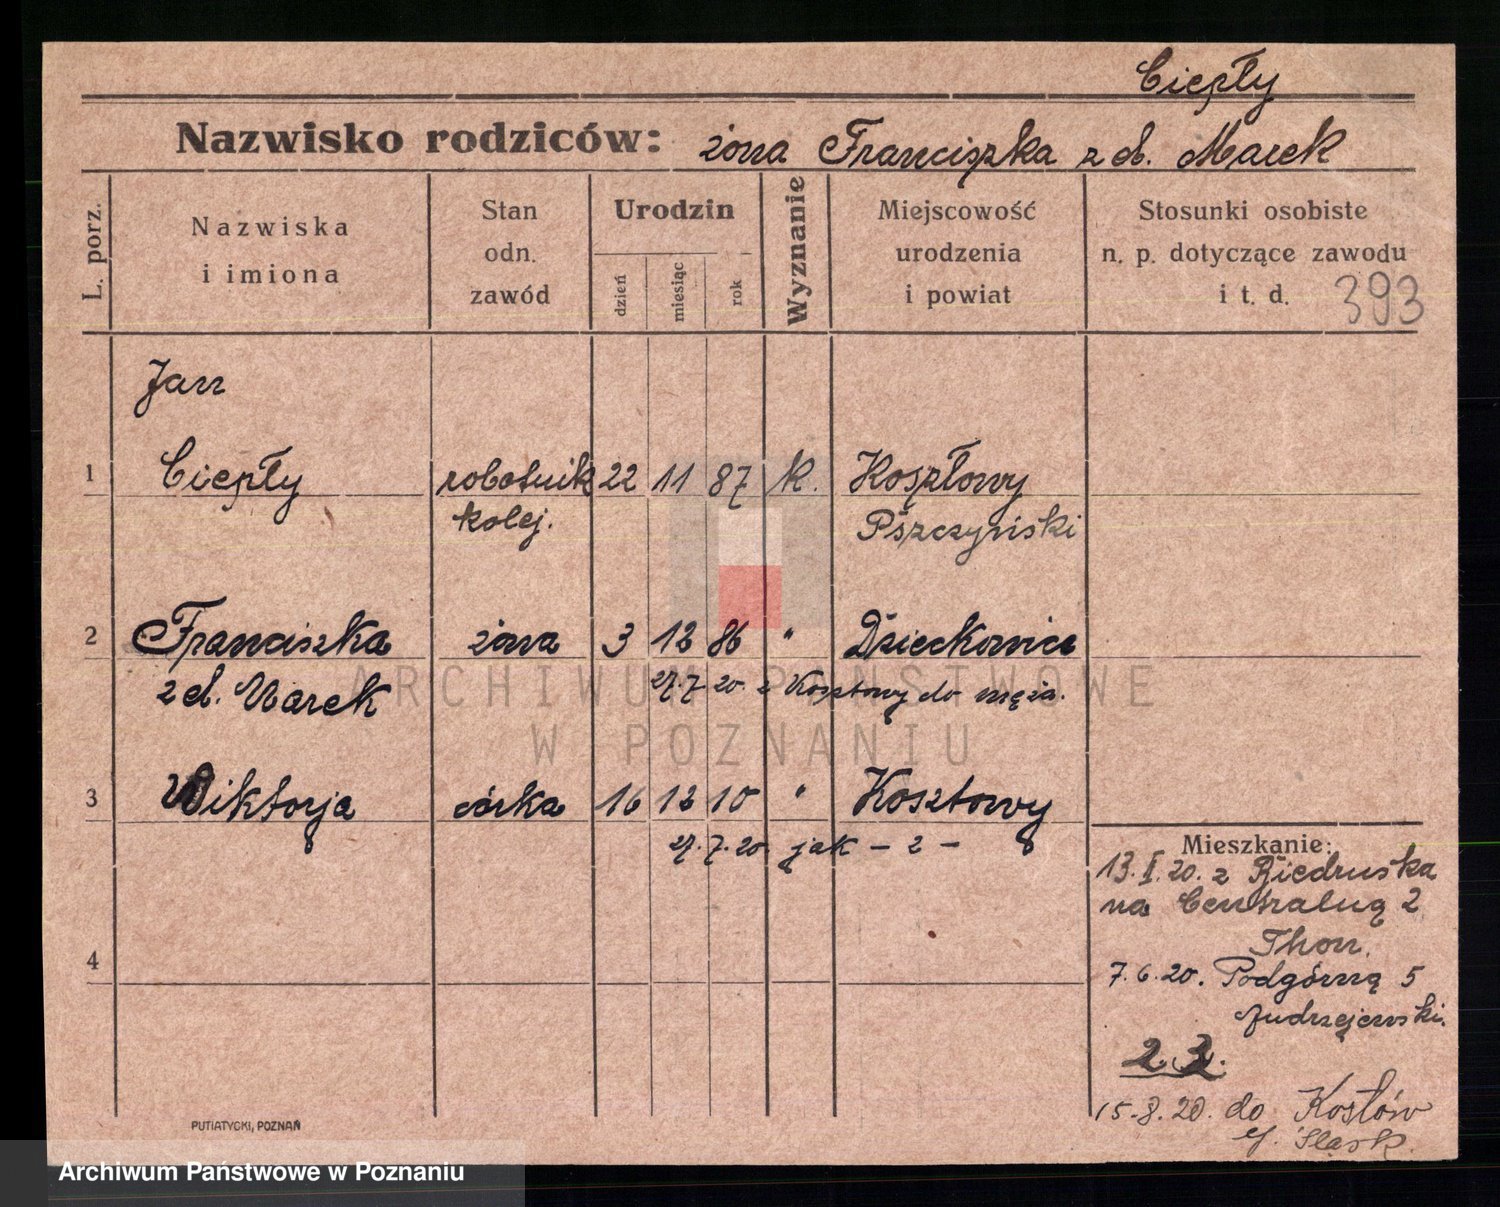 Ciepły
Nazwisko rodziców: żona Franciszka z d. Marek
L. porz.
Nazwiska
i imiona
Stan
odn.
zawód
Urodzin
dzień
miesiąc
rok
Wyznanie
Miejscowość
urodzenia
i powiat
Stosunki osobiste
n. p. dotyczące zawodu
i t. d. 393
Jan
1 Ciepły robotnik 22 11 87 k. Kosztowy
kolej. Pszczyński
2 Franciszka żona 3 12 86 " Dzieckowice
z d. Marek 27.7.20. z Kosztowy do męża.
3 Wiktorja córka 16 12 10 " Kosztowy
27.7.20 jak - 2 -
4
Mieszkanie:
13.I.20. z Biedruska
na Centralną 2
Thon.
7.6.20. Podgórną 5
Andrzejewski.
2.3.
15.8.20. do Kostów
Śląsk.
PUTIATYCKI, POZNAŃ
ARCHIWUM PAŃSTWOWE
W POZNANIU
Archiwum Państwowe w Poznaniu